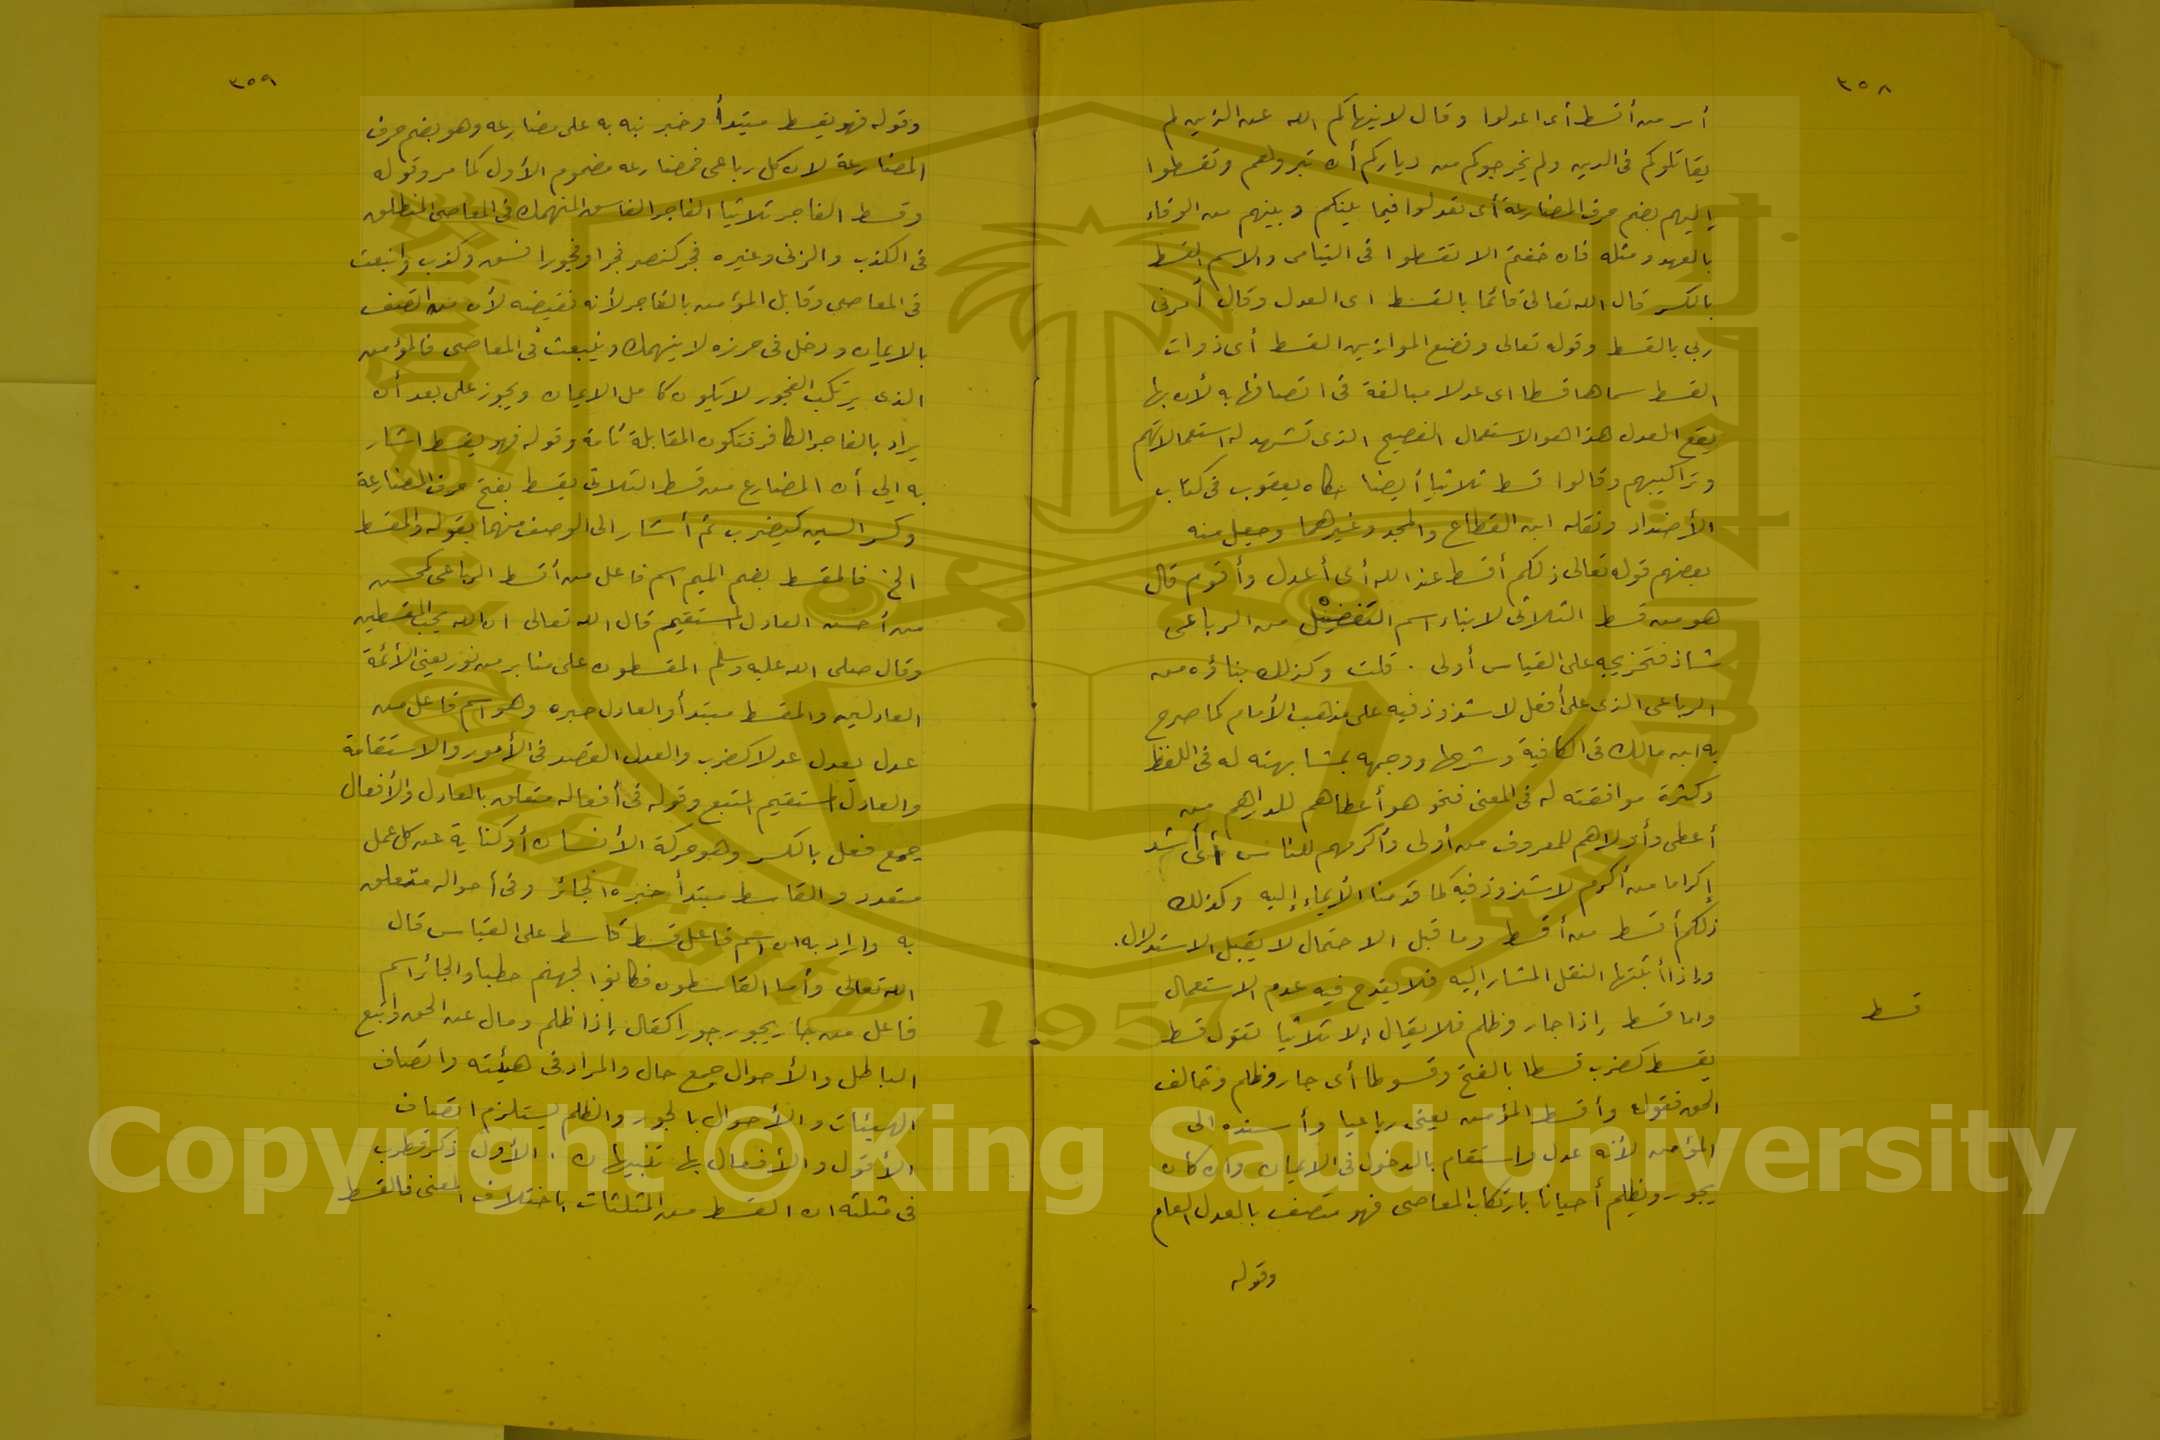 ٣٥٨
أمر من أقسط أى اعدلوا وقال لا ينهاكم الله عن الذين لم
يقاتلوكم فى الدين ولم يخرجوكم من دياركم أن تبروهم وتقسطوا
إليهم بضم حرف المضارعة أى تعدلوا فيما بينكم وبينهم من الوفاء
بالعهد ومثله فان خفتم الا تقسطوا فى اليتامى والاسم القسط
بالكسر قال الله تعالى قائما بالقسط اى العدل وقال أمرنى
ربى بالقسط وقوله تعالى ونضع الموازين القسط أى ذوات
القسط سماها قسطا اى عدلا مبالغة فى اتصافها به لأن بها
يقع العدل هذا هو الاستعمال الفصيح الذى تشهد له استعمالاتهم
وتراكيبهم وقالوا قسط ثلاثيا أيضا حكاه يعقوب فى كتاب
الأضداد ونقله ابن القطاع والمجد وغيرهما وجعل منه
بعضهم قوله تعالى ذلكم أقسط عند الله أى أعدل وأقوم قال
هو من قسط الثلاثى لا بناء اسم التفضيل من الرباعى
شاذ فتخريجه على القياس أولى . قلت وكذلك بناؤه من
الرباعى الذى على أفعل لا شذوذ فيه على مذهب الأمام كما صرح
به ابن مالك فى الكافية وشرحها ووجهه بمشابهته له فى اللفظ
وكثرة موافقته له فى المعنى فنحو هو أعطاهم للدراهم من
أعطى وأولاهم للمعروف من أولى وأكرمهم للناس أى أشد
إكراما من أكرم لا شذوذ فيه كما قدمنا الأيماء إليه وكذلك
ذلكم أقسط من أقسط وما قبل الاحتمال لا يقبل الاستدلال.
وإذا أثبتها النقل المشار إليه فلا يقدح فيه عدم الاستعمال
قسط
واما قسط إذا جار وظلم فلا يقال إلا ثلاثيا تقول قسط
يقسط كضرب قسطا بالفتح وقسوطا أى جار وظلم وخالف
الحق فقوله وأقسط المؤمن يعنى رباعيا وأسنده الى
المؤمن لأنه عدل واستقام بالدخول فى الايمان وان كان
يجور ويظلم أحيانا بارتكاب المعاصى فهو متصف بالعدل العام
وقوله
٣٥٩
وقوله فهو يقسط مبتدأ وخبر نبه به على مضارعه وهو بضم حرف
المضارعة لان كل رباعى فمضارعه مضموم الأول كما مر وقوله
وقسط الفاجر ثلاثيا الفاجر الفاسق المنهمك فى المعاصى المنطلق
فى الكذب والزنى وغيره فجر كنصر فجرا وفجورا فسق وكذب وانبعث
فى المعاصى وقابل المؤمن بالفاجر لأنه نقيضه لأن من اتصف
بالايمان ودخل فى حرزه لا ينهمك وينبعث فى المعاصى فالمؤمن
الذى يرتكب الفجور لا يكون كامل الايمان ويجوز على بعد أن
يراد بالفاجر الكافر فتكون المقابلة تامة وقوله فهو يقسط اشار
به الى أن المضارع من قسط الثلاثى يقسط بفتح حرف المضارعة
وكسر السين كيضرب ثم أشار الى الوصف منهما بقوله والمقسط
الخ فالمقسط بضم الميم اسم فاعل من أقسط الرباعى كمحسن
من أحسن العادل المستقيم قال الله تعالى ان الله يحب المقسطين
وقال صلى الله عليه وسلم المقسطون على منابر من نور يعنى الأئمة
العادلين والمقسط مبتدأ والعادل خبره وهو اسم فاعل من
عدل يعدل عدلا كضرب والعدل القصد فى الأمور والاستقامة
والعادل المستقيم المتبع وقوله فى أفعاله متعلق بالعادل والأفعال
جمع فعل بالكسر وهو حركة الأنسان أو كناية عن كل عمل
متعدد والقاسط مبتدأ خبره الجائر وفى أحواله متعلق
به واراد به ان اسم فاعل قسط قاسط على القياس قال
الله تعالى وأما القاسطون فكانوا لجهنم حطبا والجائر اسم
فاعل من جار يجور جورا كقال إذا ظلم ومال عن الحق واتبع
الباطل والأحوال جمع حال والمراد فى هيئته واتصاف
الهيئات والأحوال بالجور والظلم يستلزم اتصاف
الأقول والأفعال بها تنبيهان . الأول ذكر قطرب
فى مثلثه ان القسط من المثلثات باختلاف المعنى فالقسط
Copyright © King Saud University
1957